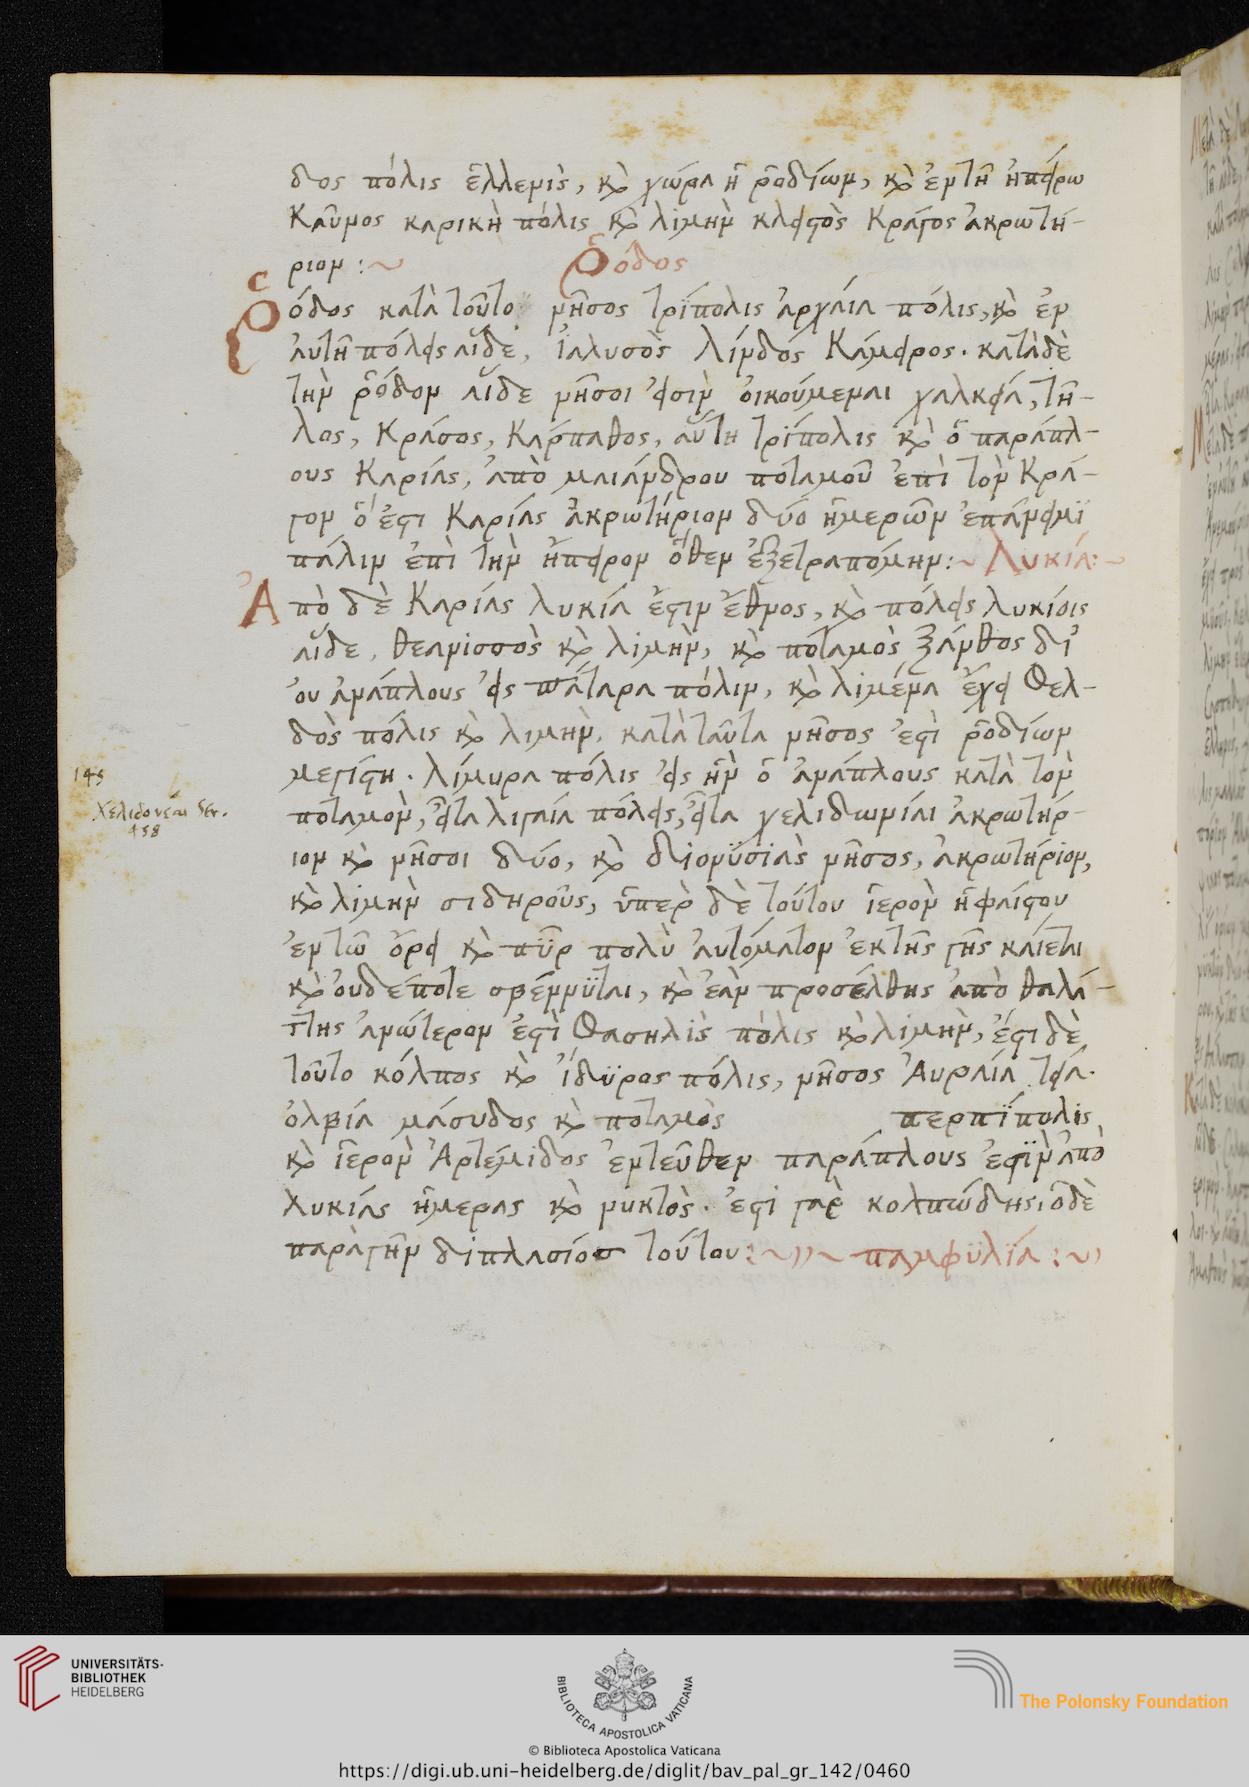 δος πόλις ἑλλενὶς, κὶ χώρα ἡ ῥοδίων, κὶ ἐν τῆ ἠπείρω
Καῦνος καρικὴ πόλις κὶ λιμὴν κλειστὸς Κράγος ἀκρωτή-
ριον :~ Ῥόδος
Ῥόδος κατὰ τοῦτο νῆσος τρίπολις ἀρχαία πόλις, κὶ ἐν
αὐτῆ πόλεις αἵδε, ἰαλυσὸς λίνδός Κάμειρος. κατὰ δὲ
τὴν ῥόδον αἵδε νῆσοι εἰσὶν οἰκούμεναι χαλκεία, τῆ-
λος, Κράσος, Κάρπαθος, αὕτη τρίπολις κὶ ὁ παράπλ-
ους Καρίας, ἀπὸ μαιάνδρου ποταμοῦ ἐπὶ τὸν Κρά-
γον ὅ ἐστι Καρίας ἀκρωτήριον δύο ἡμερῶν ἐπάνειμϊ
πάλιν ἐπὶ τὴν ἤπειρον ὅθεν ἐξετραπόμην :~ Λυκία :~
Ἀπὸ δὲ Καρίας λυκία ἔστιν ἔθνος, κὶ πόλεις λυκίοις
αἵδε, θεανισσὸς κὶ λιμὴν, κὶ ποταμὸς Ξάνθος δι'
οὐ ἀνάπλους εἰς πάταρα πόλιν, κὶ λιμένα ἔχει Φελ-
δὸς πόλις κὶ λιμὴν. κατὰ ταῦτα νῆσος ἐστὶ ῥοδίων
μεγίστη. λίμυρα πόλις εἰς ἣν ὁ ἀνάπλους κατὰ τὸν
ποταμὸν, εἶτα λιγαία πόλεις, εἶτα χελιδωνίαι ἀκρωτήρ-
ιον κὶ νῆσοι δύο, κὶ διονϋσιὰς νῆσος, ἀκρωτήριον,
κὶ λιμὴν σιδηροῦς, ὑπὲρ δὲ τούτου ἱερὸν ἡφαίστου
ἐν τῶ ὄρει κὶ πῦρ πολὺ αὐτόματον ἐκ τῆς γῆς καίεται
κὶ οὐδέποτε σβέννϋται, κὶ ἐὰν προσέλθης ἀπὸ θαλά-
ττης ἀνώτερον ἐστὶ Φασηλὶς πόλις κὶ λιμὴν, ἔστι δὲ
τοῦτο κόλπος κὶ ἴδϋρος πόλις, νῆσος Ἀυραία τεία.
ὀλβία μάσυδος κὶ ποταμὸς περπϊπολις
κὶ ἱερὸν Ἀρτέμιδος ἐντεῦθεν παράπλους ἐστϊν ἀπὸ
λυκίας ἡμερας κὶ νυκτὸς. ἐστὶ γὰρ κολπώδης, ὁ δὲ
παρὰ γῆν διπλασίοσ τούτου :~ παμφϋλϊα :~
Χελιδονέαι Str.
458
UNIVERSITÄTS-
BIBLIOTHEK
HEIDELBERG
BIBLIOTECA APOSTOLICA VATICANA
The Polonsky Foundation
© Biblioteca Apostolica Vaticana
https://digi.ub.uni-heidelberg.de/diglit/bav_pal_gr_142/0460